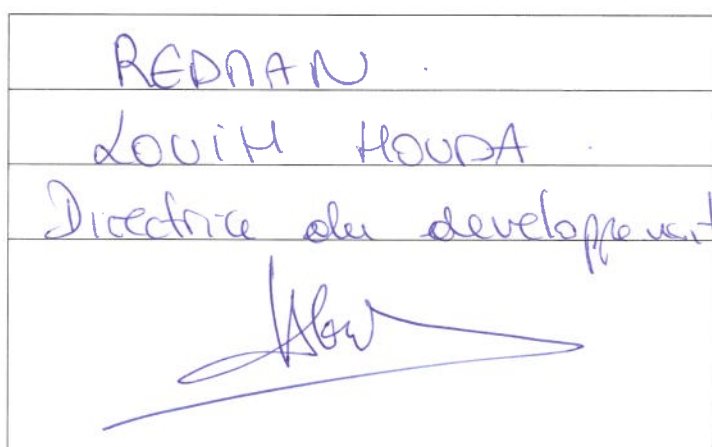 REDMAN.
LOUIH HOUDA.
Directrice du developpement